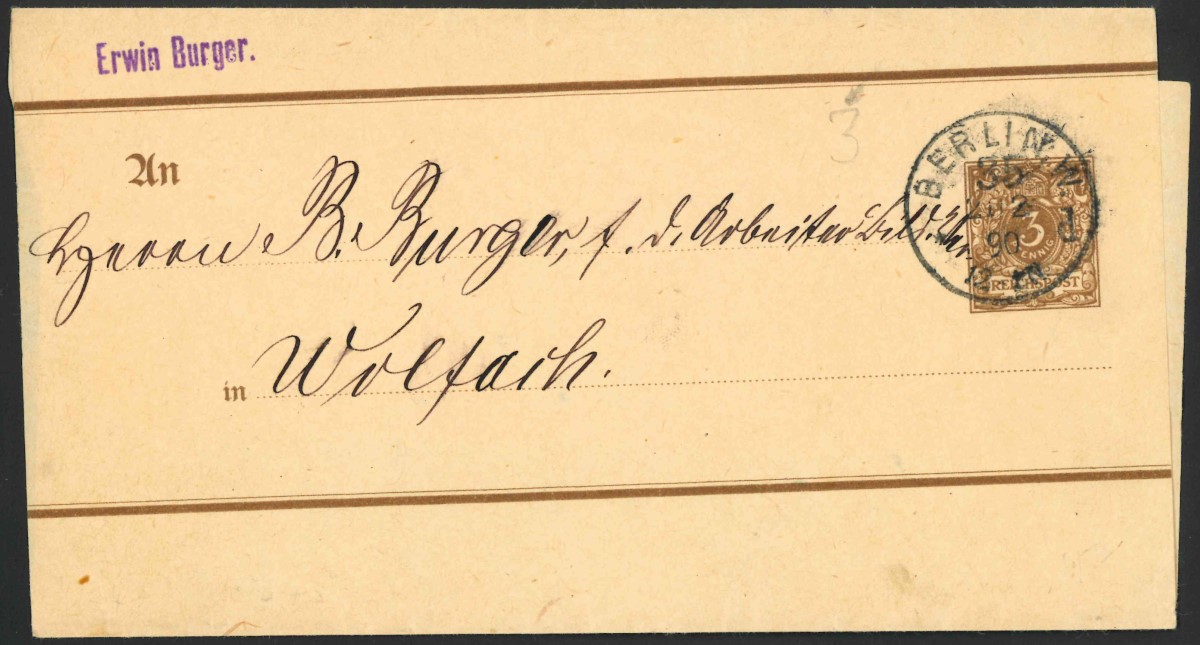 Erwin Burger.
An
Herrn B. Burger, f. d. Arbeiter Bild.
in Wolfach.
3
BERLIN,W
35
2
90
12
3
PFENNIG
REICHSPOST